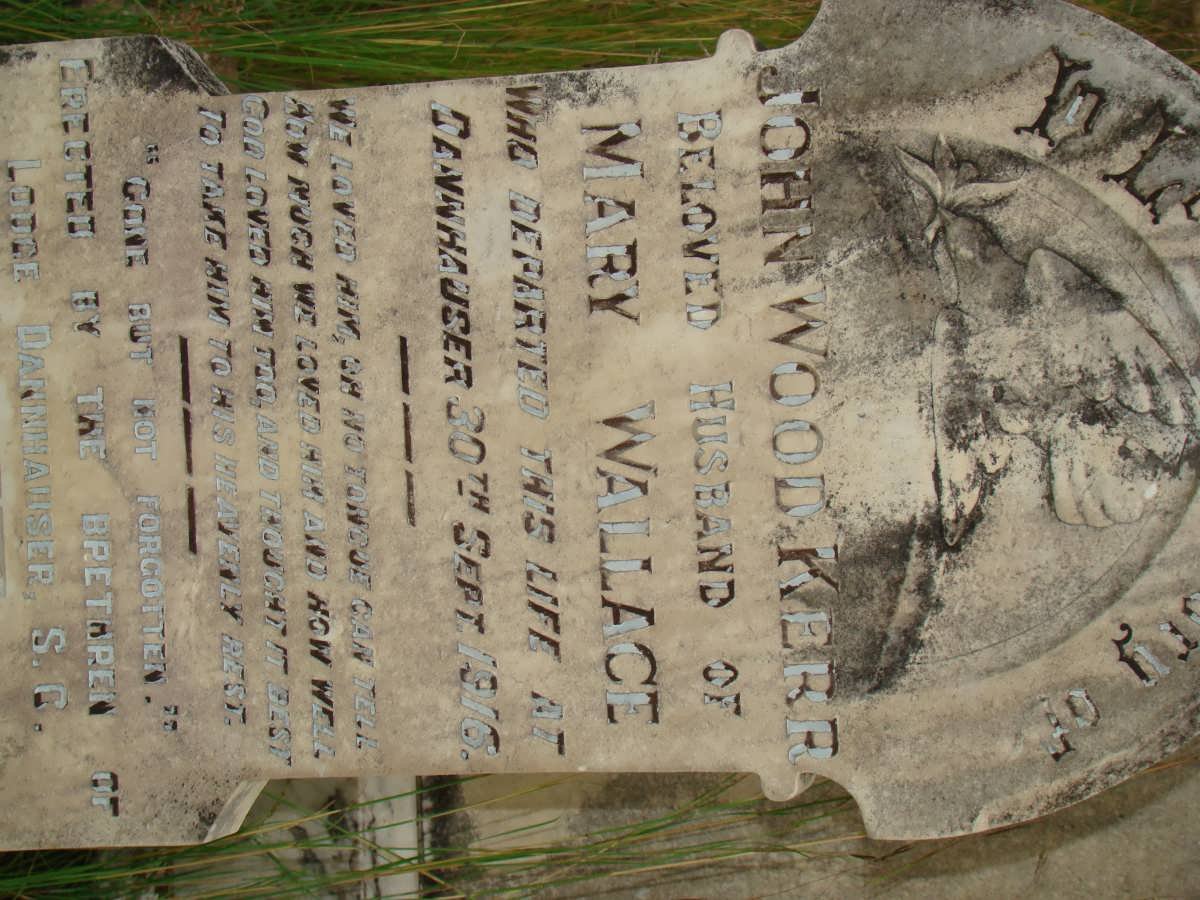 JOHN WOOD KERR
BELOVED HUSBAND OF
MARY WALLACE
WHO DEPARTED THIS LIFE AT
DANNHAUSER 30TH SEPT. 1916.
WE LOVED HIM, OH NO TONGUE CAN TELL
HOW MUCH WE LOVED HIM AND HOW WELL
GOD LOVED HIM TOO, AND THOUGHT IT BEST
TO TAKE HIM TO HIS HEAVENLY REST.
"GONE BUT NOT FORGOTTEN."
ERECTED BY THE BRETHREN OF
LODGE DANNHAUSER, S.C.